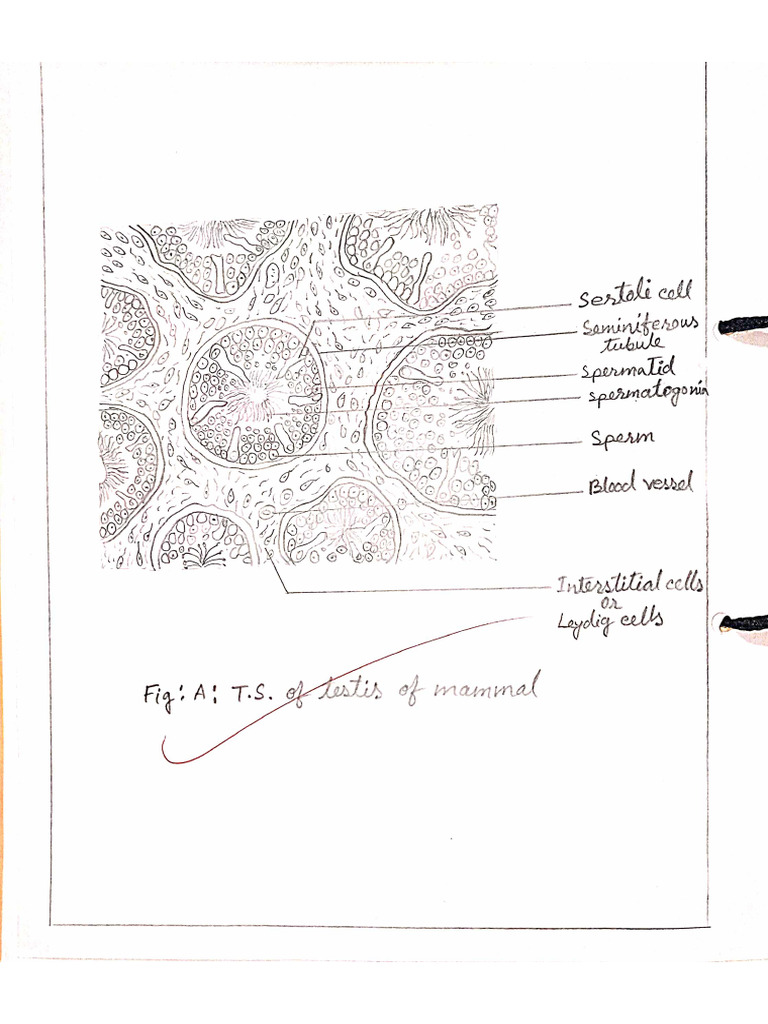 Sertoli cell
Seminiferous
tubule
Spermatid
Spermatogonia
Sperm
Blood vessel
Interstitial cells
or
Leydig cells
Fig: A: T.S. of testis of mammal